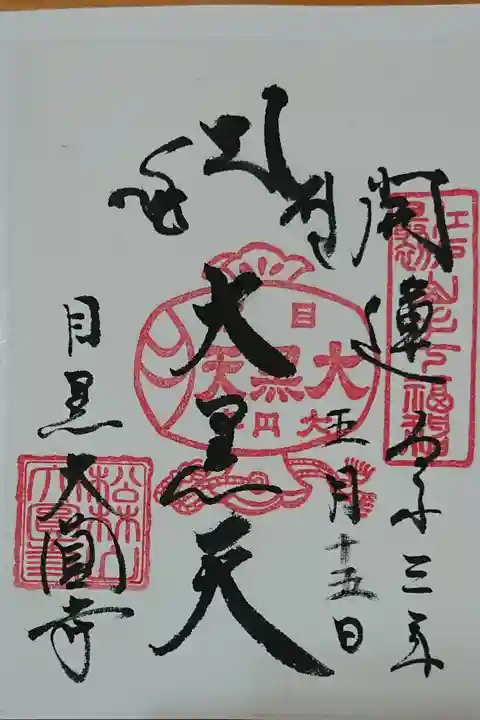 江戸最初山手七福神
開運
令和三年
五月十五日
大黒天
目
大黒天
大円寺
目黒大圓寺